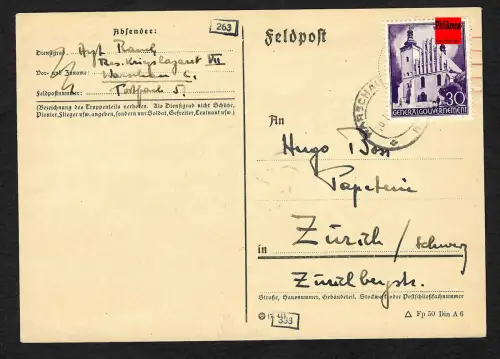 Absender:
263
Dienstgrad: Arzt
Res. Kriegslazaret VII
Vor- und Zuname:
Warschau C.
Feldpostnummer: Postfach 5
(Bezeichnung des Truppenteils verboten. Als Dienstgrad nicht Schütze,
Pionier, Flieger usw. angeben, sondern nur Soldat, Gefreiter, Leutnant usw.)
Feldpost
30
GENERALGOUVERNEMENT
WARSCHAU
An
Hugo
Papeterie
Zürich / Schweiz
in
Zürichbergstr.
Straße, Hausnummer, Gebäudeteil, Stockwerk oder Postschließfachnummer
353
△ Fp 50 Din A 6